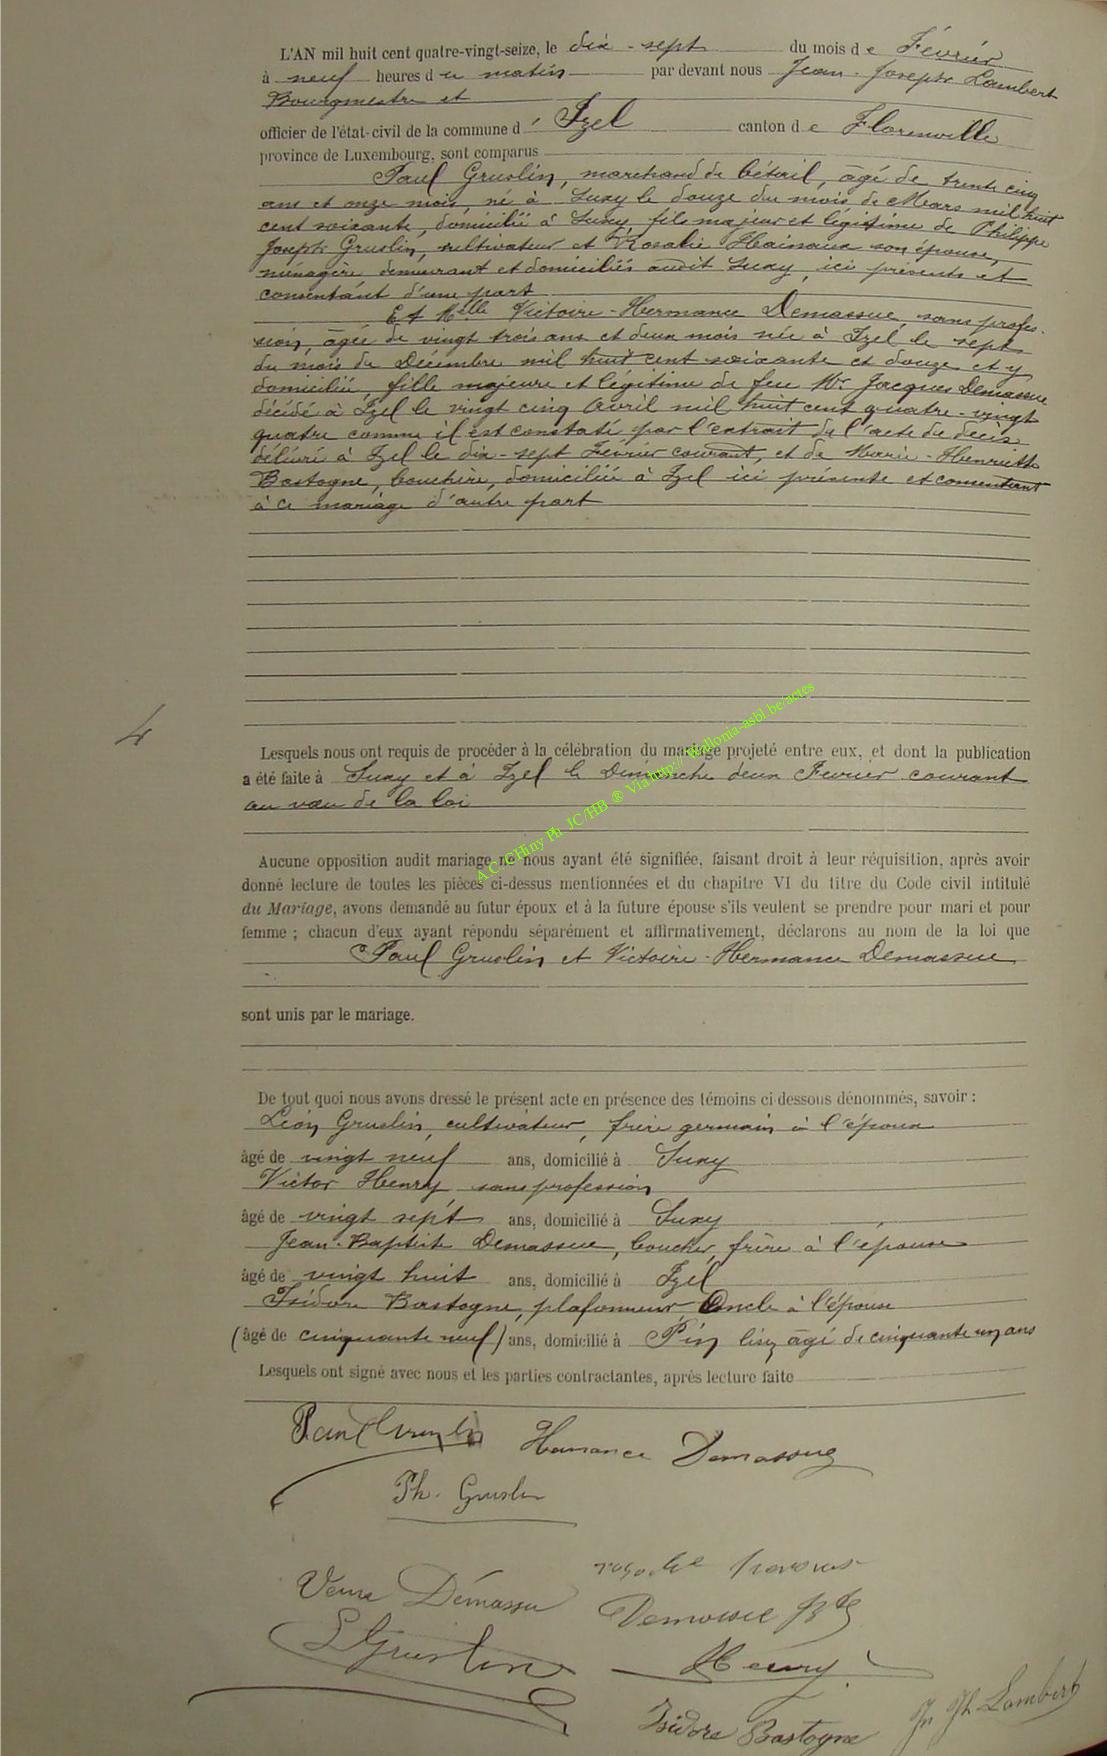 L'AN mil huit cent quatre-vingt-seize, le dix-sept du mois de Février
à neuf heures du matin par devant nous Jean-Joseph Lambert
Bourgmestre et
officier de l'état-civil de la commune d' Izel canton de Florenville
province de Luxembourg, sont comparus
Paul Gruslin, marchand de bétail, âgé de trente cinq
ans et onze mois, né à Suxy le douze du mois de Mars mil huit
cent soixante, domicilié à Suxy, fils majeur et légitime de Philippe
Joseph Gruslin, cultivateur et Rosalie Hainaux son épouse,
ménagère demeurant et domiciliés audit Suxy, ici présents et
consentant d'une part
Et Melle Victoire-Hermance Demassue, sans profes-
sion, âgée de vingt trois ans et deux mois née à Izel le sept
du mois de Décembre mil huit cent soixante et douze et y
domiciliée, fille majeure et légitime de feu Mr Jacques Demassue
décédé à Izel le vingt cinq Avril mil huit cent quatre-vingt
quatre comme il est constaté par l'extrait de l'acte de décès
délivré à Izel le dix-sept Février courant, et de Marie-Henriette
Bastogne, bouchère, domiciliée à Izel ici présente et consentant
à ce mariage d'autre part
4
Lesquels nous ont requis de procéder à la célébration du mariage projeté entre eux, et dont la publication
a été faite à Suxy et à Izel le Dimanche deux Février courant
au vœu de la loi
A.C. CHiny Ph JC/HB ® Via http:// Wallonia-asbl be/actes
Aucune opposition audit mariage ne nous ayant été signifiée, faisant droit à leur réquisition, après avoir
donné lecture de toutes les pièces ci-dessus mentionnées et du chapitre VI du titre du Code civil intitulé
du Mariage, avons demandé au futur époux et à la future épouse s'ils veulent se prendre pour mari et pour
femme ; chacun d'eux ayant répondu séparément et affirmativement, déclarons au nom de la loi que
Paul Gruslin et Victoire-Hermance Demassue
sont unis par le mariage.
De tout quoi nous avons dressé le présent acte en présence des témoins ci-dessous dénommés, savoir :
Léon Gruslin, cultivateur, frère germain à l'époux
âgé de vingt neuf ans, domicilié à Suxy
Victor Henry sans profession
âgé de vingt sept ans, domicilié à Suxy
Jean-Baptiste Demassue, boucher, frère à l'épouse
âgé de vingt huit ans, domicilié à Izel
Isidore Bastogne, plafonneur, Oncle à l'épouse
(âgé de cinquante neuf) ans, domicilié à Pin lisez âgé de cinquante un ans
Lesquels ont signé avec nous et les parties contractantes, après lecture faite
Paul Gruslin Hermance Demassue
Ph. Gruslin
Rosalie
Veuve Démassue Demassue Bte
L Gruslin Henry
Isidore Bastogne Jn Jh Lambert